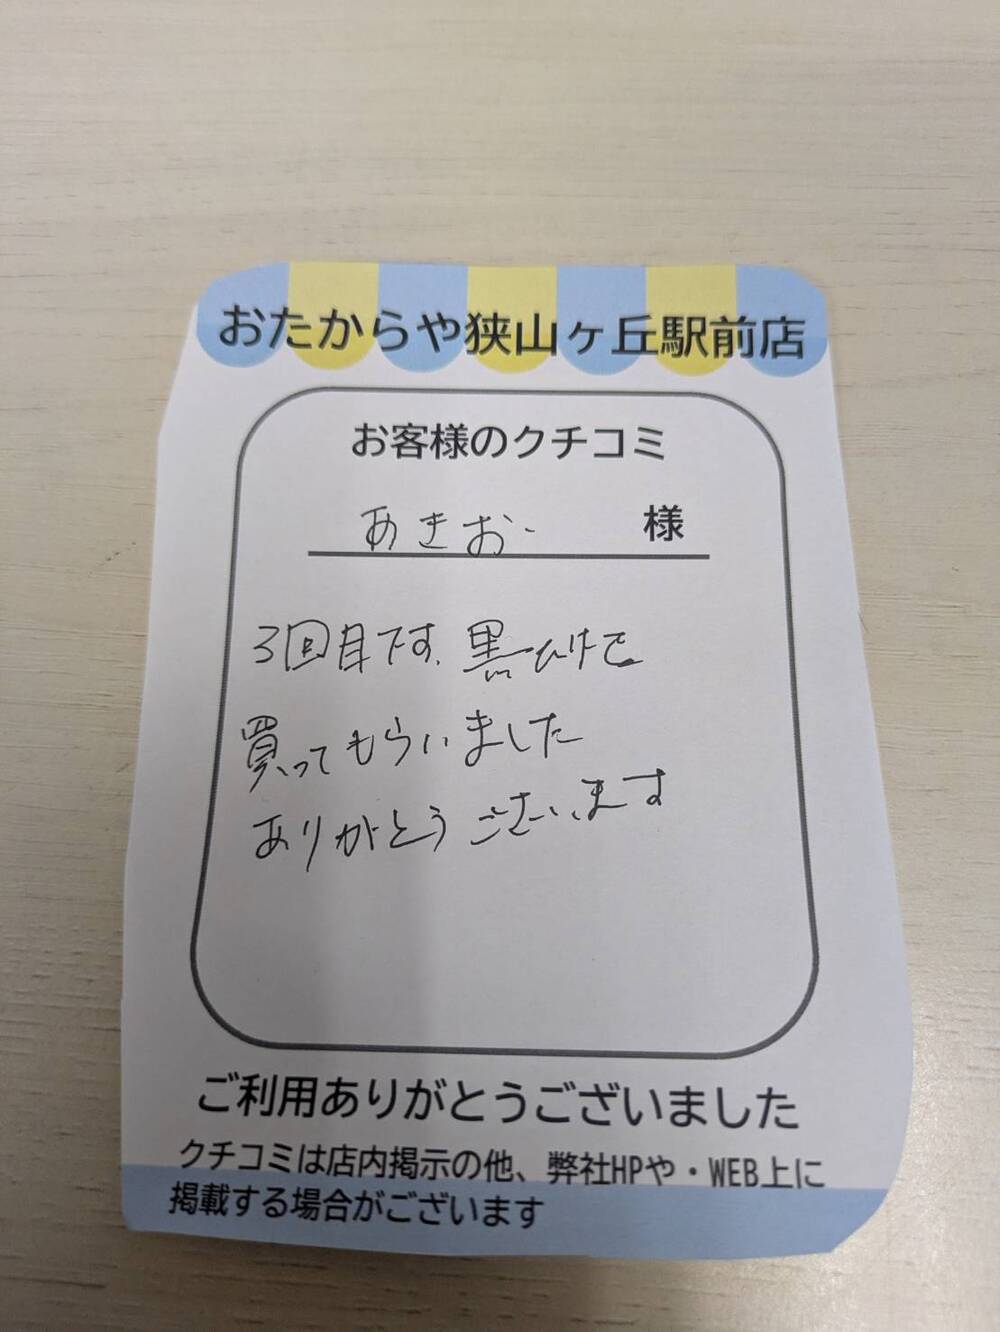 おたからや狭山ヶ丘駅前店
お客様のクチコミ
あきお 様
3回目です、黒ひげで
買ってもらいました
ありがとうございます
ご利用ありがとうございました
クチコミは店内掲示の他、弊社HPや・WEB上に
掲載する場合がございます